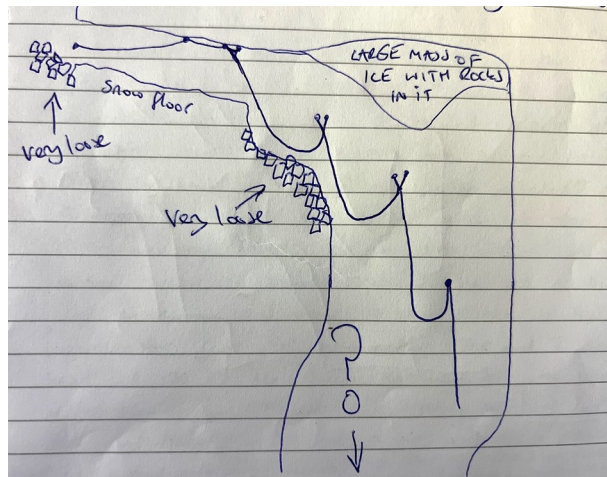 LARGE MASS OF
ICE WITH ROCKS
IN IT
Snow floor
very loose
Very loose
?